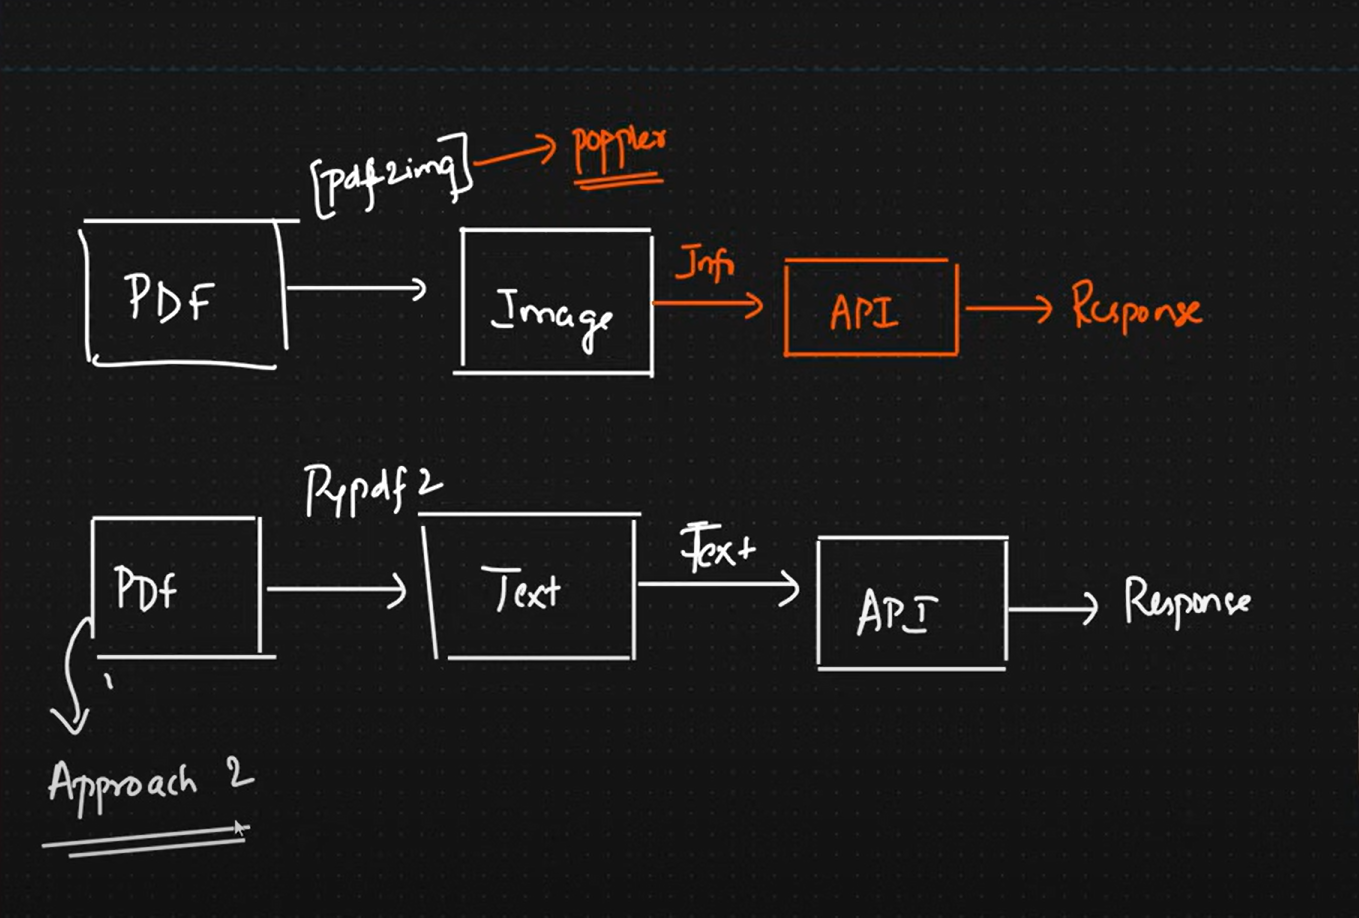 [pdf2img] poppler
PDF
Image
Info
API
Response
Pypdf2
PDf
Text
Text
API
Response
Approach 2